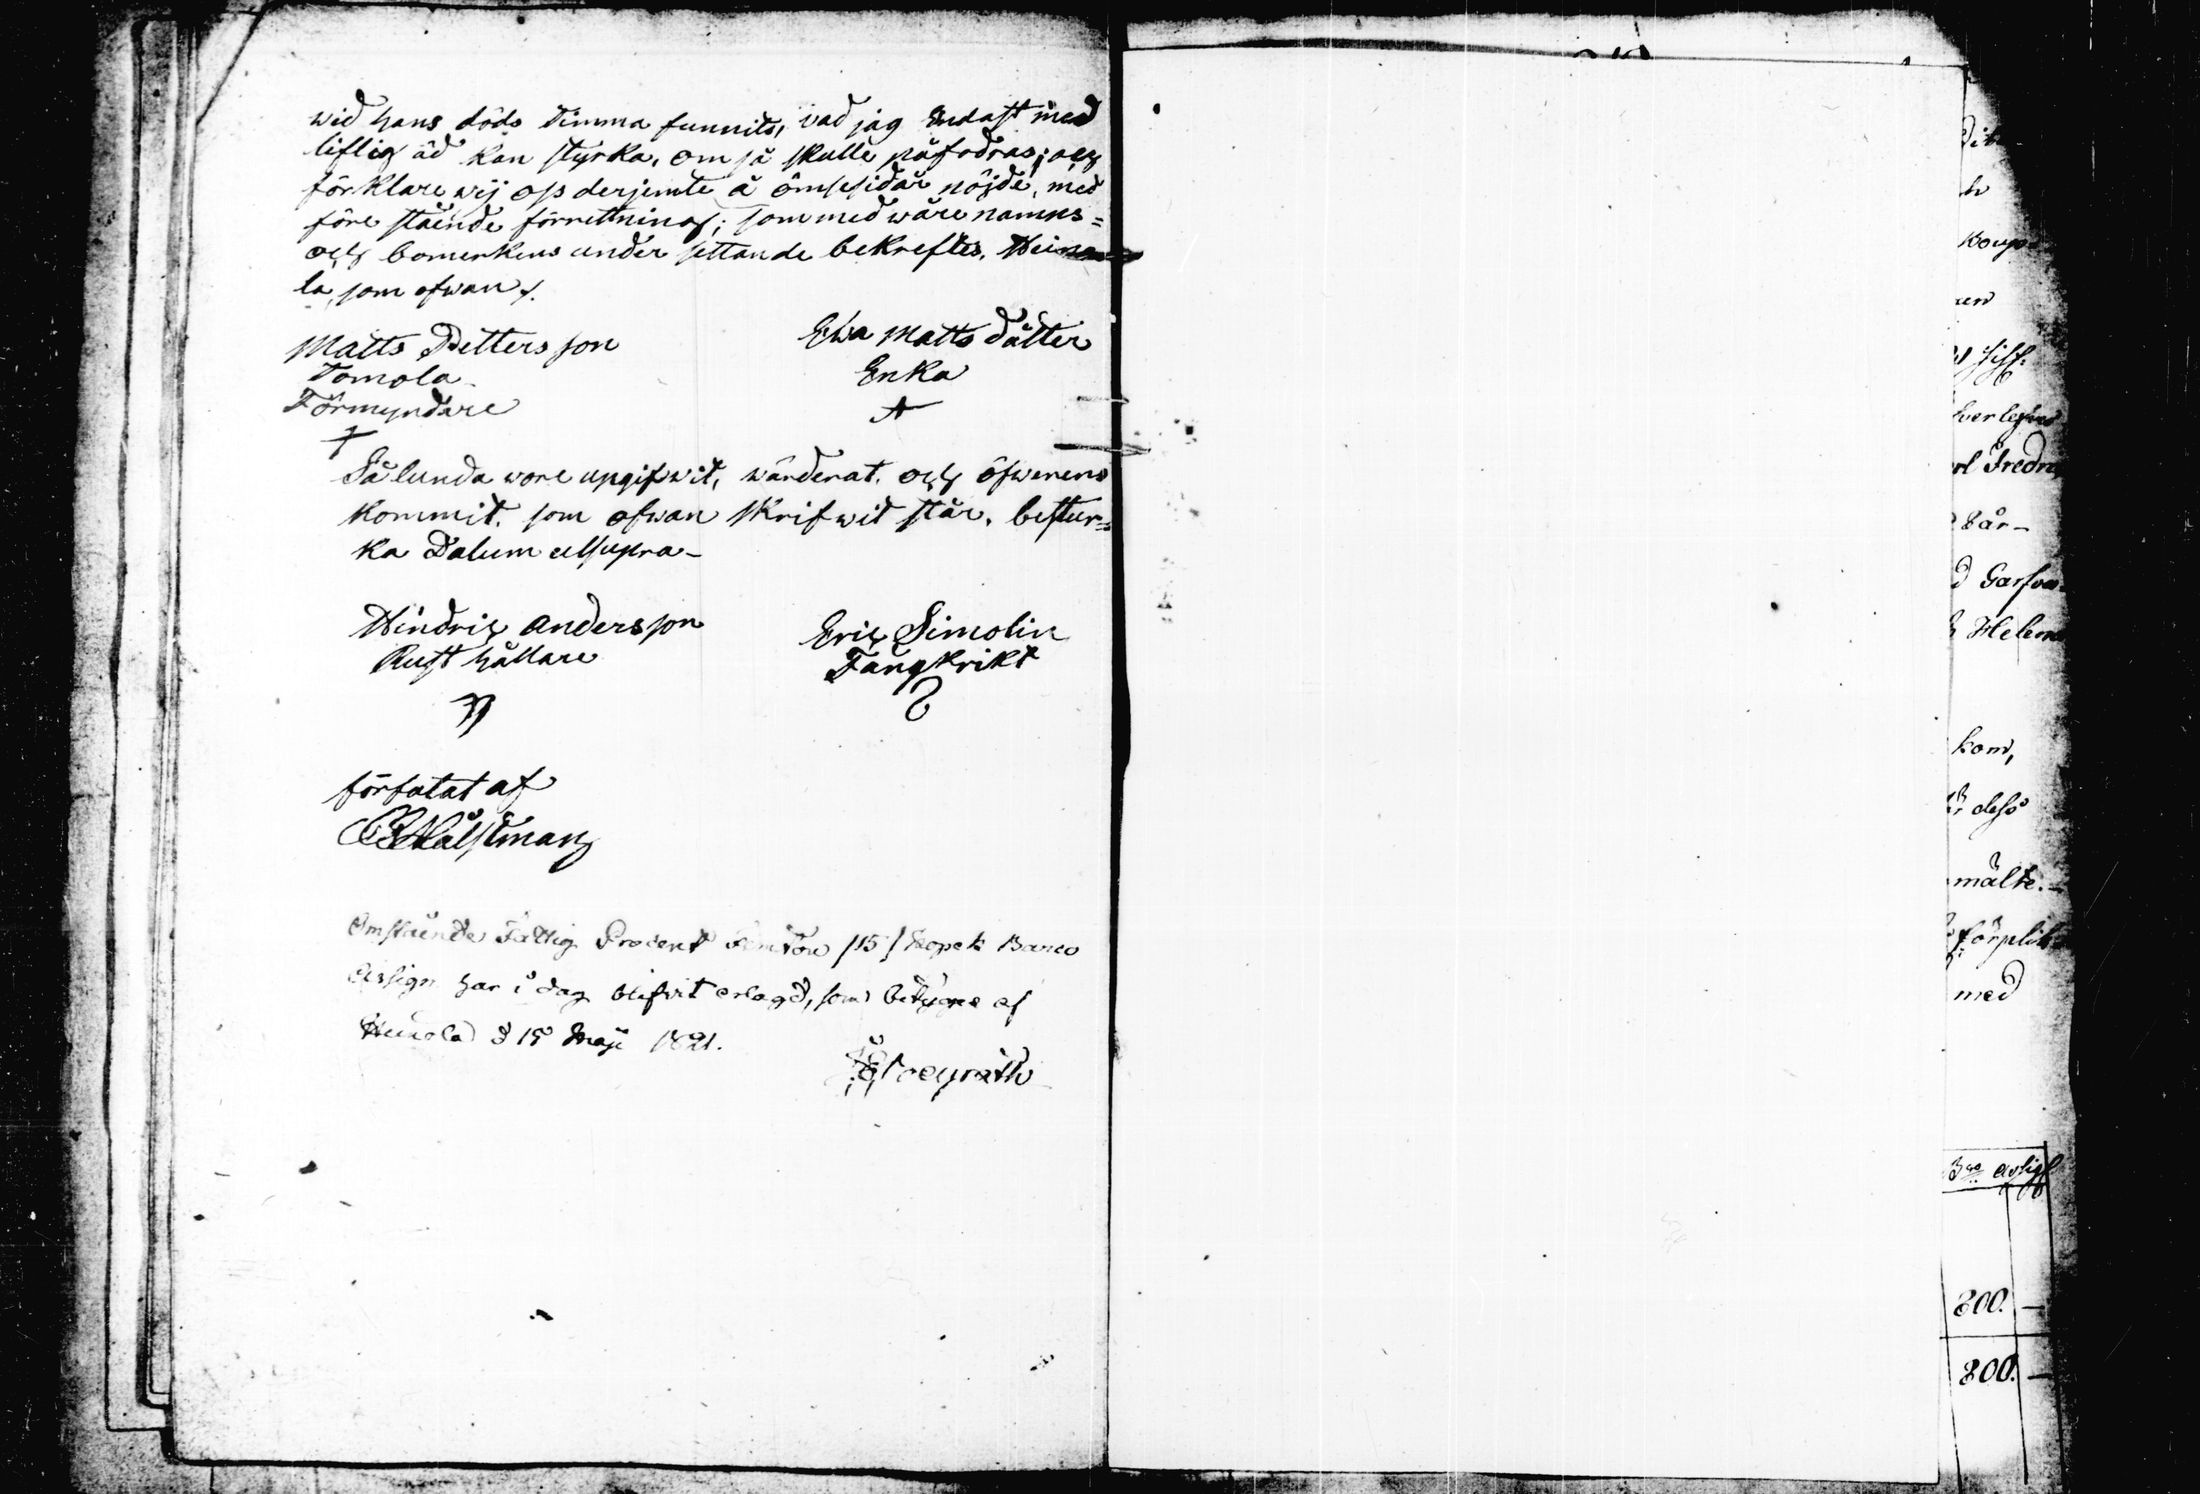 wid hans döds timma funnits, vad jag Endast med
liflig äd kan styrka, om så skulle påfodras; och
förklare wij oss derjemte å ömsesidår nöjde, med
före stående förrettning; som med wåre namns=
och bomerkens under settande bekreftes. Heino
la, som ofwan
Matts Pettersson
Tomola
Förmyndare
Ewa Matts dåtter
Enka
Så lunda wore upgifwit, wärderat, och öfwerens
kommit, som ofwan skrifwit står, bestyr=
ka Datum utsupra
Hindrich Andersson
Rusthållare
Erich Simolin
Fångkrikt
förfatat af
Omstående Fattig Procent Femton /15/ Kopek Banco
Assign har i dag blifvit erlagd, som betygas af
Heinola d 15 Maji 1821.
kom,
dess
målte.
med
800. —
800. —